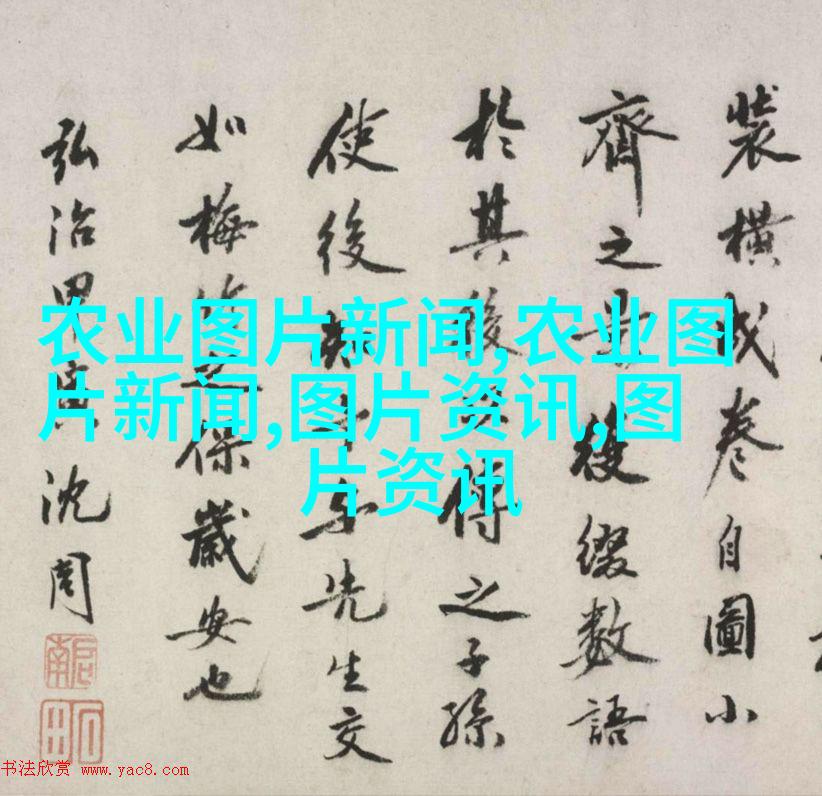 裝橫成卷自圖小
齊之後綴數語
於其後得之子孫
使後先生交
如梅之保歲安也
弘治甲寅沈周
农业图片新闻,农业图
片新闻,图片资讯,图
片资讯
书法欣赏 www.yac8.com